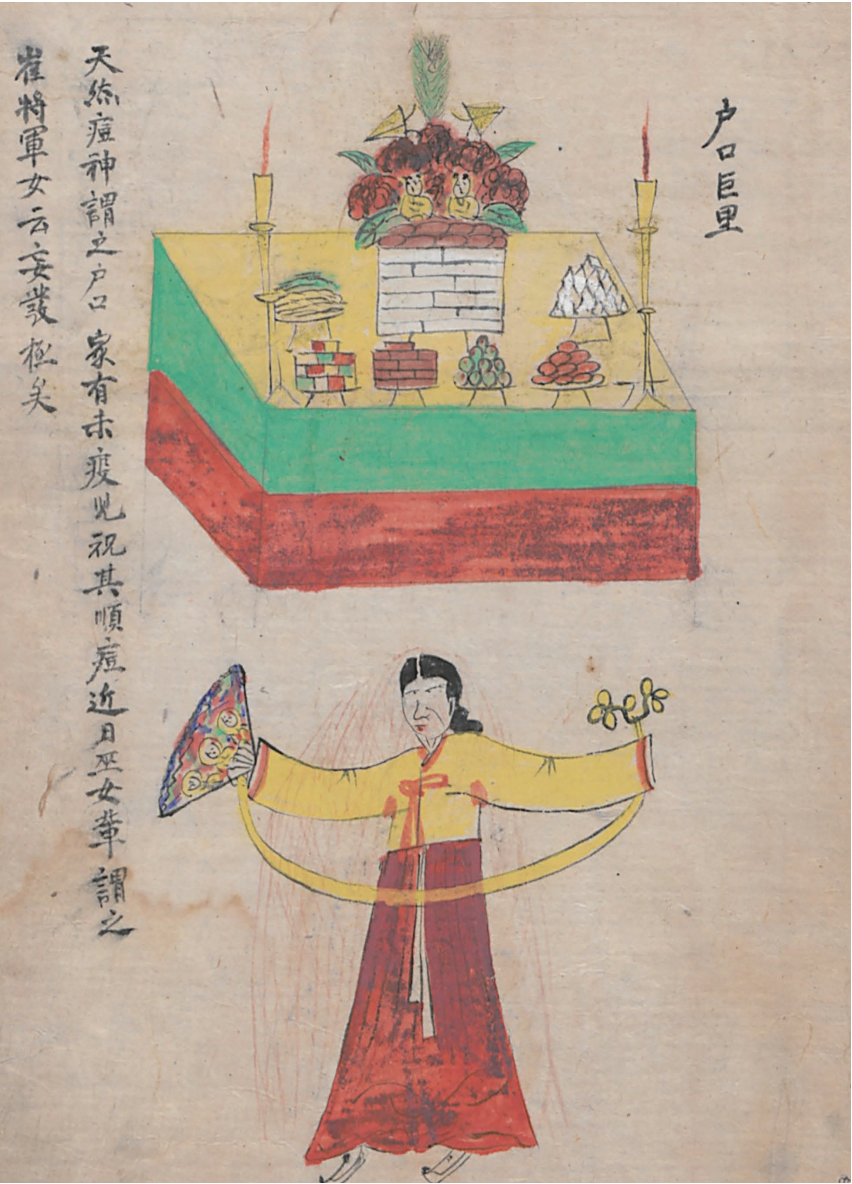 戶口巨里
天然痘神謂之戶口 家有未疫児祝其順痘近日巫女輩謂之
崔將軍女云妄發極矣